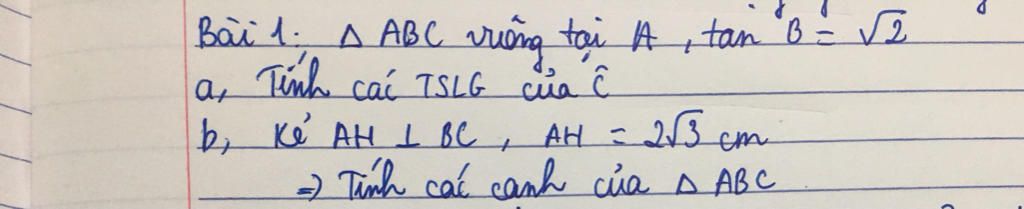 Bài 1: Δ ABC vuông tại A, tan B = √2
a, Tính các TSLG của Ĉ
b, Kẻ AH ⊥ BC, AH = 2√3 cm
⇒ Tính các cạnh của Δ ABC